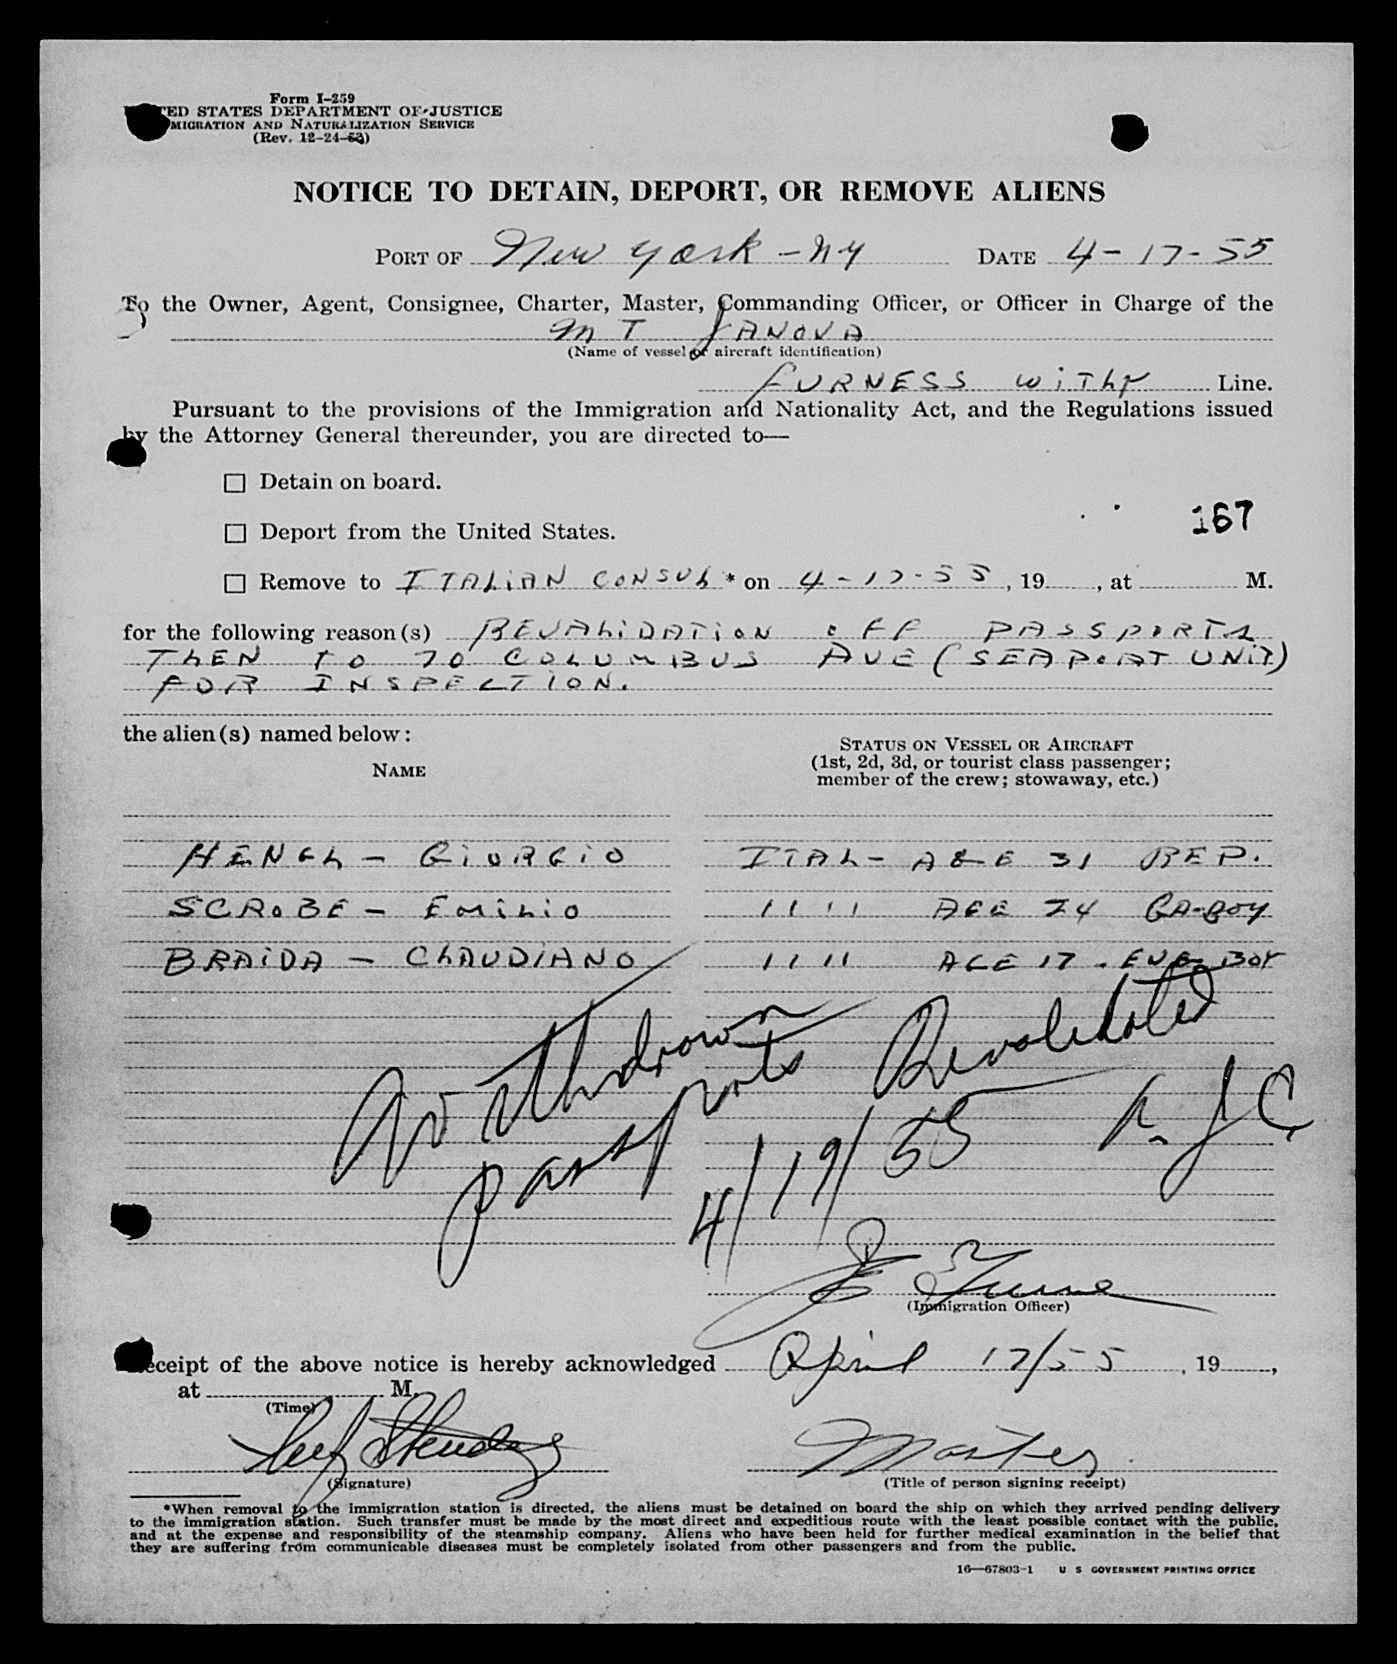 Form I-259
UNITED STATES DEPARTMENT OF JUSTICE
IMMIGRATION AND NATURALIZATION SERVICE
(Rev. 12-24-52)
NOTICE TO DETAIN, DEPORT, OR REMOVE ALIENS
PORT OF New York - NY DATE 4-17-55
To the Owner, Agent, Consignee, Charter, Master, Commanding Officer, or Officer in Charge of the
MT JANOVA
(Name of vessel or aircraft identification)
FURNESS WITHY Line.
Pursuant to the provisions of the Immigration and Nationality Act, and the Regulations issued
by the Attorney General thereunder, you are directed to—
☐ Detain on board.
☐ Deport from the United States.
167
☐ Remove to ITALIAN CONSUL * on 4-17-55, 19 , at M.
for the following reason(s) REVALIDATION OFF PASSPORTS
THEN TO 70 COLUMBUS AVE (SEAPORT UNIT)
FOR INSPECTION.
the alien(s) named below:
STATUS ON VESSEL OR AIRCRAFT
(1st, 2d, 3d, or tourist class passenger;
member of the crew; stowaway, etc.)
NAME
HENGL - GIORGIO ITAL - AGE 31 REP.
SCROBE - EMILIO 11 11 AGE 24 GA-BOY
BRAIDA - CLAUDIANO 11 11 AGE 17 - ENG BOY
Withdrawn
Passports Revalidated
4/19/55
(Immigration Officer)
Receipt of the above notice is hereby acknowledged April 17/55, 19 ,
at M.
(Time)
Master
(Signature) (Title of person signing receipt)
*When removal to the immigration station is directed, the aliens must be detained on board the ship on which they arrived pending delivery
to the immigration station. Such transfer must be made by the most direct and expeditious route with the least possible contact with the public,
and at the expense and responsibility of the steamship company. Aliens who have been held for further medical examination in the belief that
they are suffering from communicable diseases must be completely isolated from other passengers and from the public.
16—67803-1 U S GOVERNMENT PRINTING OFFICE